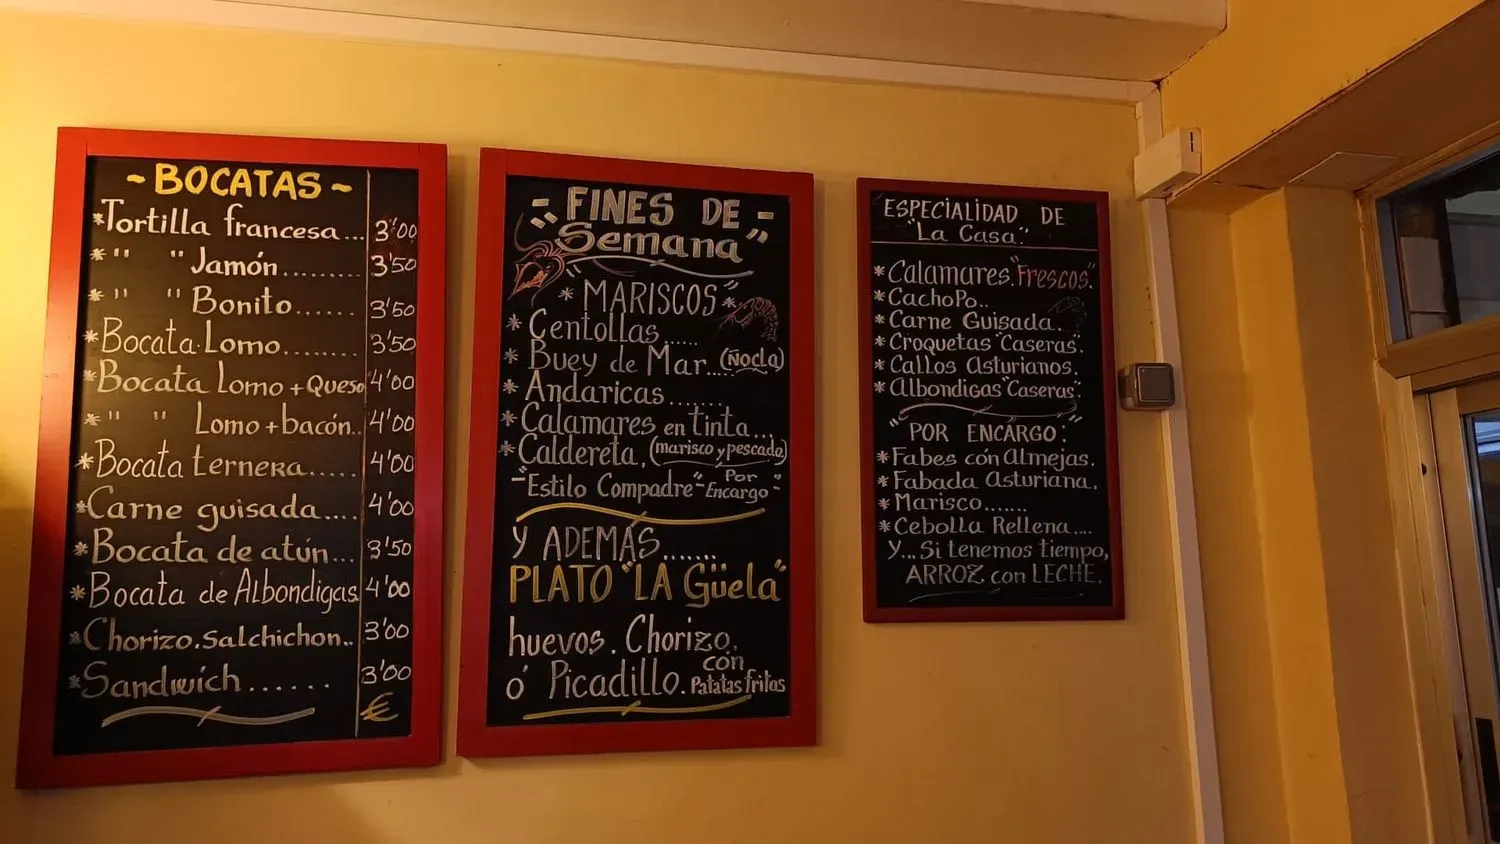 ~ BOCATAS ~
*Tortilla francesa... 3'00
*" " "Jamón......... 3'50
*" " "Bonito...... 3'50
*Bocata Lomo........ 3'50
*Bocata Lomo + Queso 4'00
*" " Lomo + bacón.. 4'00
*Bocata ternera..... 4'00
*Carne guisada.... 4'00
*Bocata de atún... 3'50
*Bocata de Albondigas 4'00
*Chorizo. Salchichon.. 3'00
*Sandwích...... 3'00
€
"FINES DE
Semana"
* MARISCOS *
* Centollas......
* Buey de Mar.... (Ñocla)
* Andaricas.......
* Calamares en tinta...
* Caldereta. (marisco y pescado)
"Estilo Compadre" Por Encargo
Y ADEMÁS.......
PLATO "LA Güela"
huevos. Chorizo.
ó Picadillo. cón Patatas fritas
ESPECIALIDAD DE
"La Casa".
*Calamares "Frescos".
*CachoPo..
*Carne Guisada.
*Croquetas "Caseras".
*Callos Asturianos.
*Albondigas "Caseras".
"POR ENCÁRGO:"
*Fabes cón Almejas.
*Fabada Asturiana.
*Marisco.......
*Cebolla Rellena....
Y... Si tenemos tiempo,
ARROZ con LECHE.